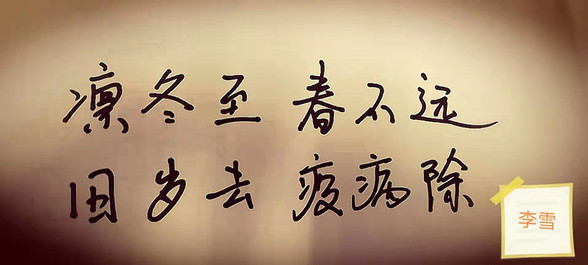 凛冬至 春不远
旧岁去 疫病除
李雪